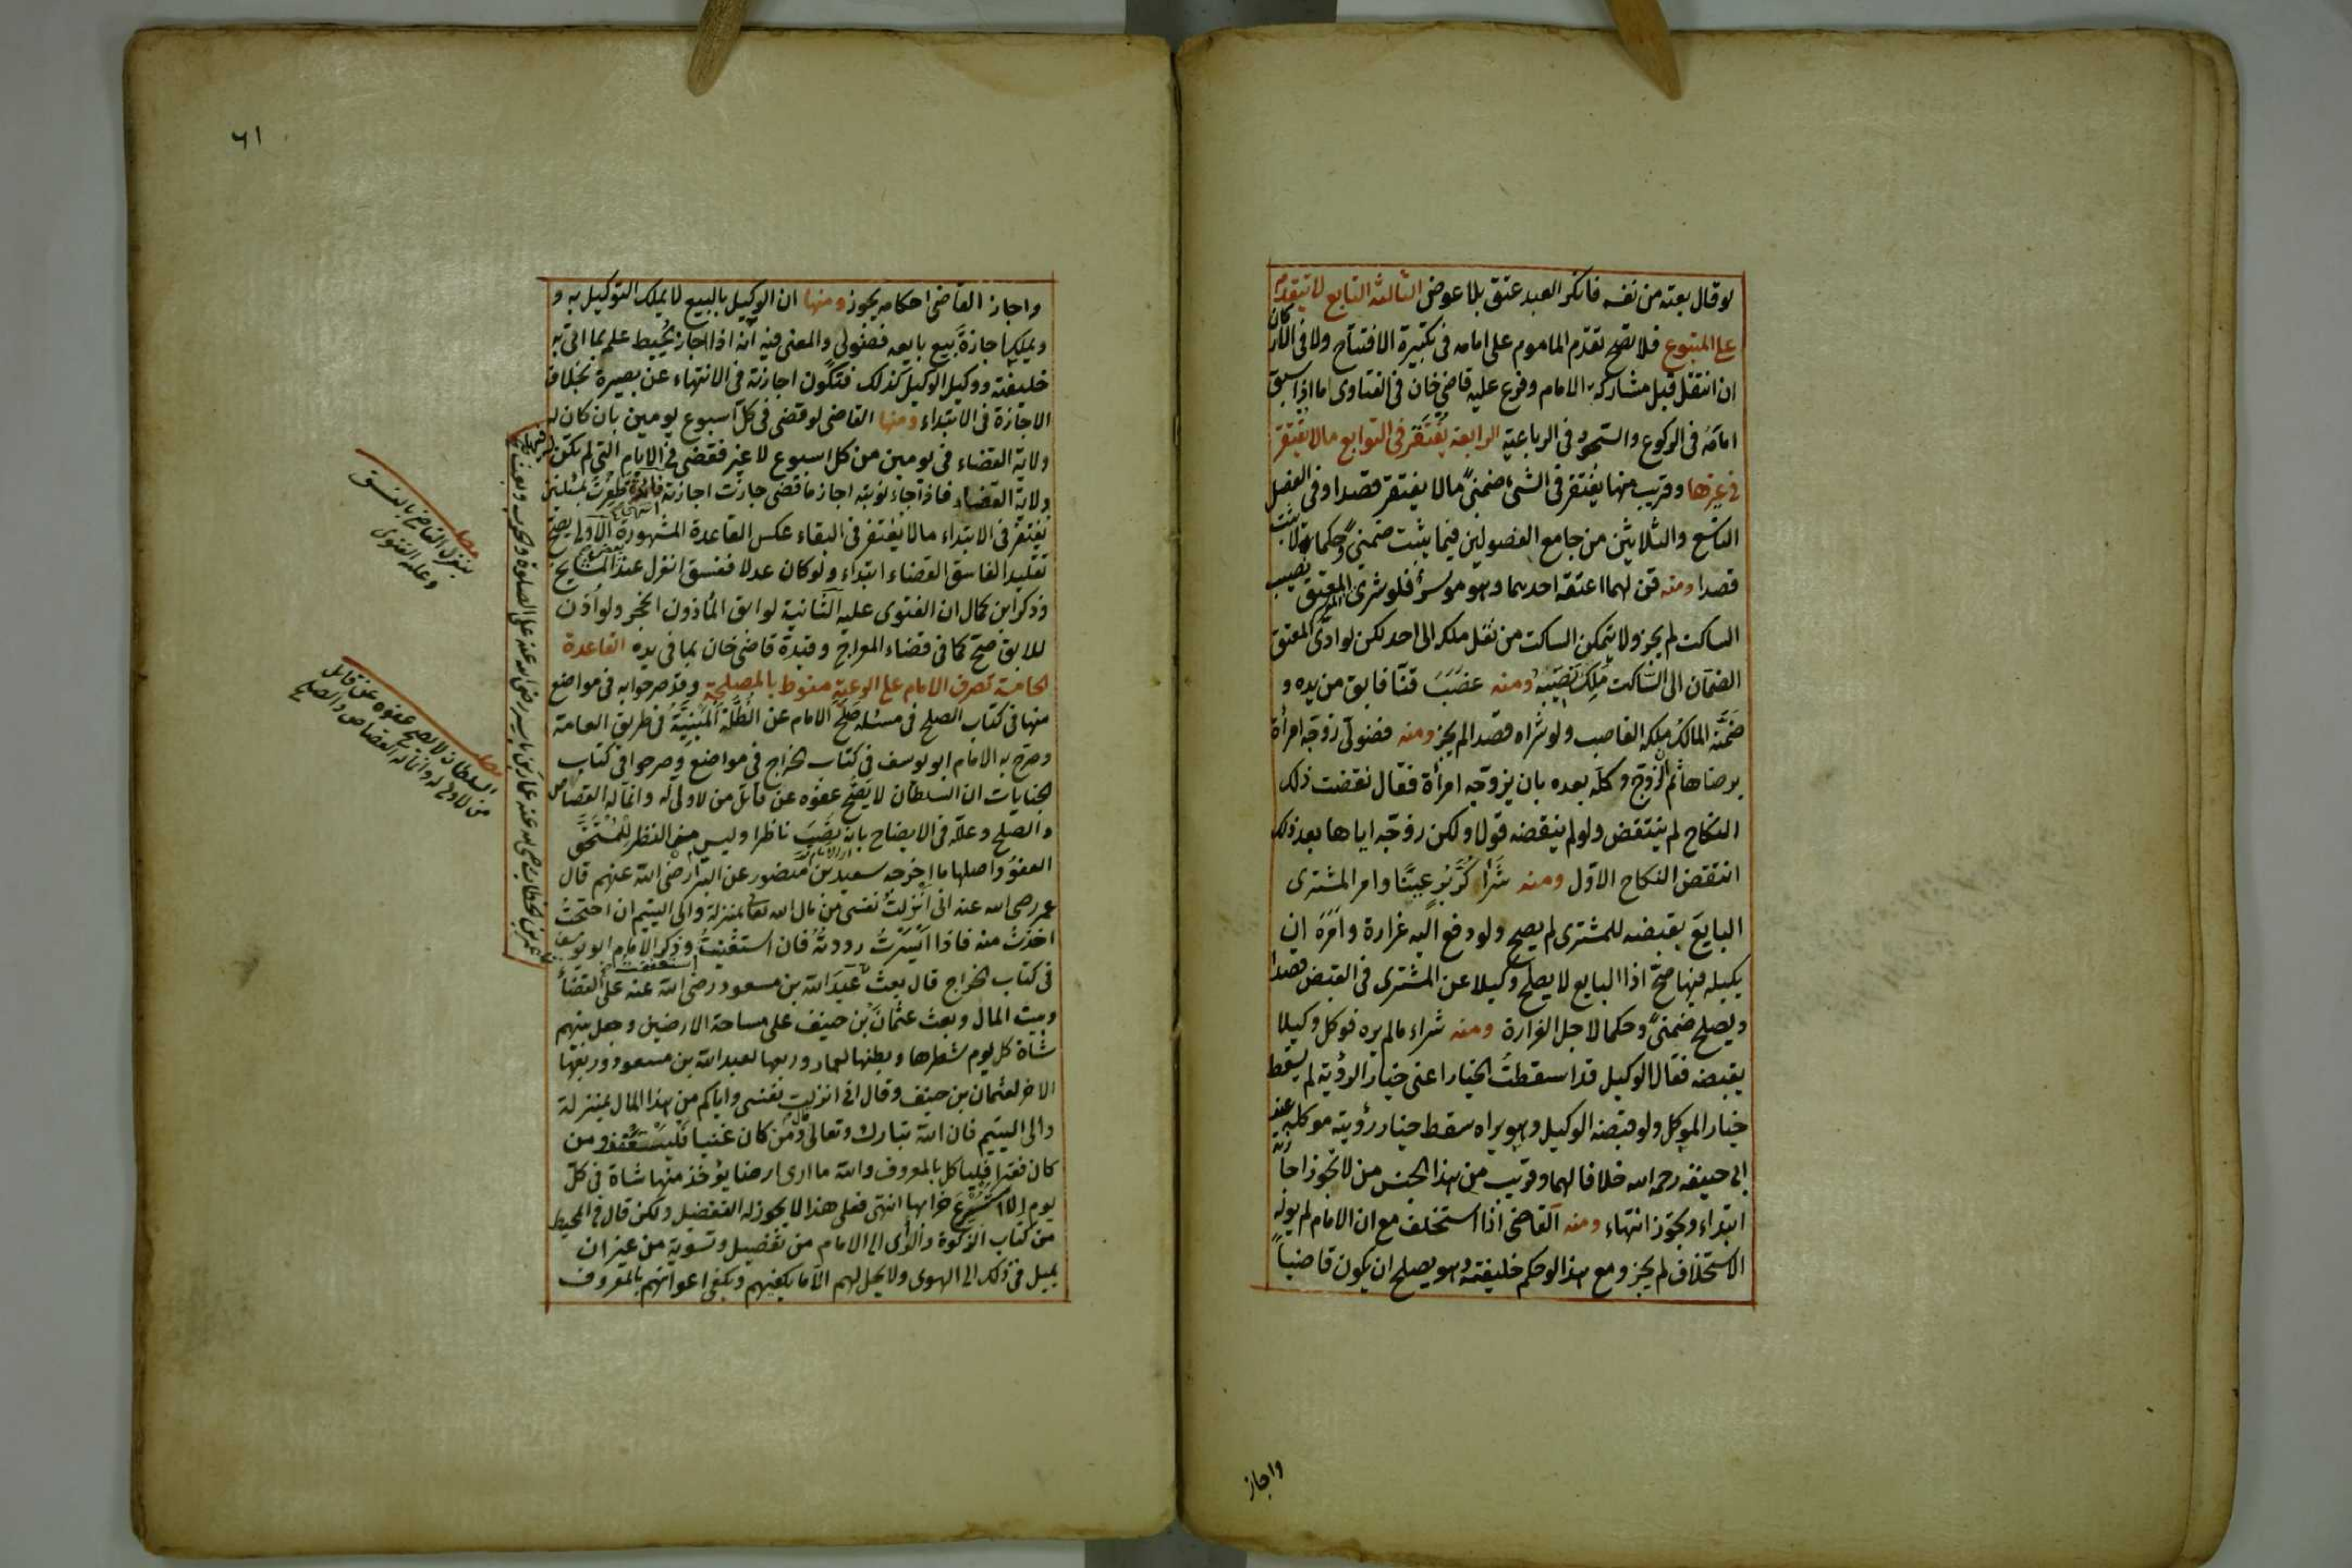 لو قال بعته من نفسه فانكر العبد عتق بلا عوض الثالثة التابع لا يتقدم
على المتبوع فلا تصح تقدم الماموم على امامه في تكبيرة الافتتاح ولا في الاركان
ان انتقل قبل مشاركة الامام وفرع عليه قاضي خان في الفتاوى اما اذا سبق
امامه في الركوع والسجود في الرباعية الرابعة يغتفر في التوابع ما لا يغتفر
في غيرها وقريب منها يغتفر في الشئ ضمنا ما لا يغتفر قصدا وفي الفصل
التاسع والثلاثين من جامع الفصولين فيما يثبت ضمنا وحكما ولا يثبت
قصدا ومنه قن لهما اعتقه احدهما وهو موسر فلو شرى المعتق نصيب
الساكت لم يجز ولا يتمكن الساكت من نقل ملكه الى احد لكن لو ادى المعتق
الضمان الى الساكت ملك نصيبه ومنه غصب قنا فابق من يده و
ضمنه المالك ملكه الغاصب ولو شراه قصدا لم يجز ومنه فضولي زوجه امرأة
برضاها ثم الزوج وكله بعده بان يزوجه امرأة فقال نقضت ذلك
النكاح لم ينتقض ولو لم ينقضه قولا ولكن زوجه اياها بعد ذلك
انتقض النكاح الاول ومنه شرا كر بر عينا وامر المشترى
البايع بقبضه للمشترى لم يصح ولو دفع اليه غرارة وامره ان
يكيله فيها صح اذا البايع لا يصلح وكيلا عن المشترى في القبض قصدا
ويصلح ضمنا وحكما لاجل الغرارة ومنه شراء ما لم يره فوكل وكيلا
بقبضه فقال الوكيل قد اسقطت الخيار اعني خيار الرؤية لم يسقط
خيار الموكل ولو قبضه الوكيل وهو يراه سقط خيار رؤية موكله عند
ابي حنيفه رحمه الله خلافا لهما وقريب من هذا الجنس من لا تجوز اجازته
ابتداء وتجوز انتهاء ومنه القاضي اذا استخلف مع ان الامام لم يوله
الاستخلاف لم يجز ومع هذا لو حكم خليفته وهو يصلح ان يكون قاضيا
واجاز
٦١
واجاز القاضي احكامه يجوز ومنها ان الوكيل بالبيع لا يملك التوكيل به و
ويملك اجازة بيع بايعه فضولي والمعنى فيه انه اذا اجاز يحيط علمه بما اتى به
خليفته ووكيل الوكيل كذلك فتكون اجازته في الانتهاء عن بصيرة بخلاف
الاجازة في الابتداء ومنها القاضي لو قضى في كل اسبوع يومين بان كان له
ولاية القضاء في يومين من كل اسبوع لا غير فقضى في الايام التي لم تكن له
ولاية القضاء فاذا جاء نوبته اجاز ما قضى جازت اجازته فائدة ظفرت بمسئلتين
يغتفر في الابتداء ما لا يغتفر في البقاء عكس القاعدة المشهورة الاولى يصح
تقليد الفاسق القضاء ابتداء ولو كان عدلا ففسق انعزل عند المشايخ
وذكر ابن كمال ان الفتوى عليه الثانية لو ابق المأذون انحجر ولو اذن
للابق صح كما في قضاء المعراج وقيده قاضي خان بما في يده القاعدة
الخامسة تصرف الامام على الرعية منوط بالمصلحة وقد صرحوا به في مواضع
منها في كتاب الصلح في مسئلة صلح الامام عن الظلة المبنية في طريق العامة
وصرح به الامام ابو يوسف في كتاب الخراج في مواضع وصرحوا في كتاب
الجنايات ان السلطان لا يصح عفوه عن قاتل من لا ولي له وانما له القصاص
والصلح وعلله في الايضاح بانه نصب ناظرا وليس من النظر للمستحق
العفو واصلها ما اخرجه سعيد بن منصور عن البرا رضى الله عنهم قال
عمر رضى الله عنه انى انزلت نفسى من مال الله تعالى بمنزلة والي اليتيم ان احتجت
اخذت منه فاذا ايسرت رددته فان استغنيت وذكر الامام ابو يوسف
في كتاب الخراج قال بعث عبد الله بن مسعود رضى الله عنه على القضاء
وبيت المال وبعث عثمان بن حنيف على مساحة الارضين وجعل بينهم
شاة كل يوم شطرها وبطنها لعمار وربعها لعبد الله بن مسعود وربعها
الاخر لعثمان بن حنيف وقال انى انزلت نفسى واياكم من هذا المال بمنزلة
والى اليتيم فان الله تبارك وتعالى قال ومن كان غنيا فليستعفف ومن
كان فقيرا فلياكل بالمعروف والله ما ارى ارضا يؤخذ منها شاة في كل
يوم الا استسرع خرابها انتهى فعلى هذا لا يجوز له التفضيل ولكن قال في المحيط
من كتاب الزكوة والرأى الى الامام من تفضيل وتسوية من غير ان
يميل في ذلك الى الهوى ولا يحل لهم الا ما يكفيهم ويكفي اعوانهم بالمعروف
مطلب
ينعزل القاضي بالفسق
وعليه الفتوى
مطلب
السلطان لا يصح عفوه عن قاتل
من لا ولي له وانما له القصاص والصلح
عمر بن الخطاب رضى الله عنه عمار بن ياسر رضى الله عنه على الصلوة والحرب وبعث